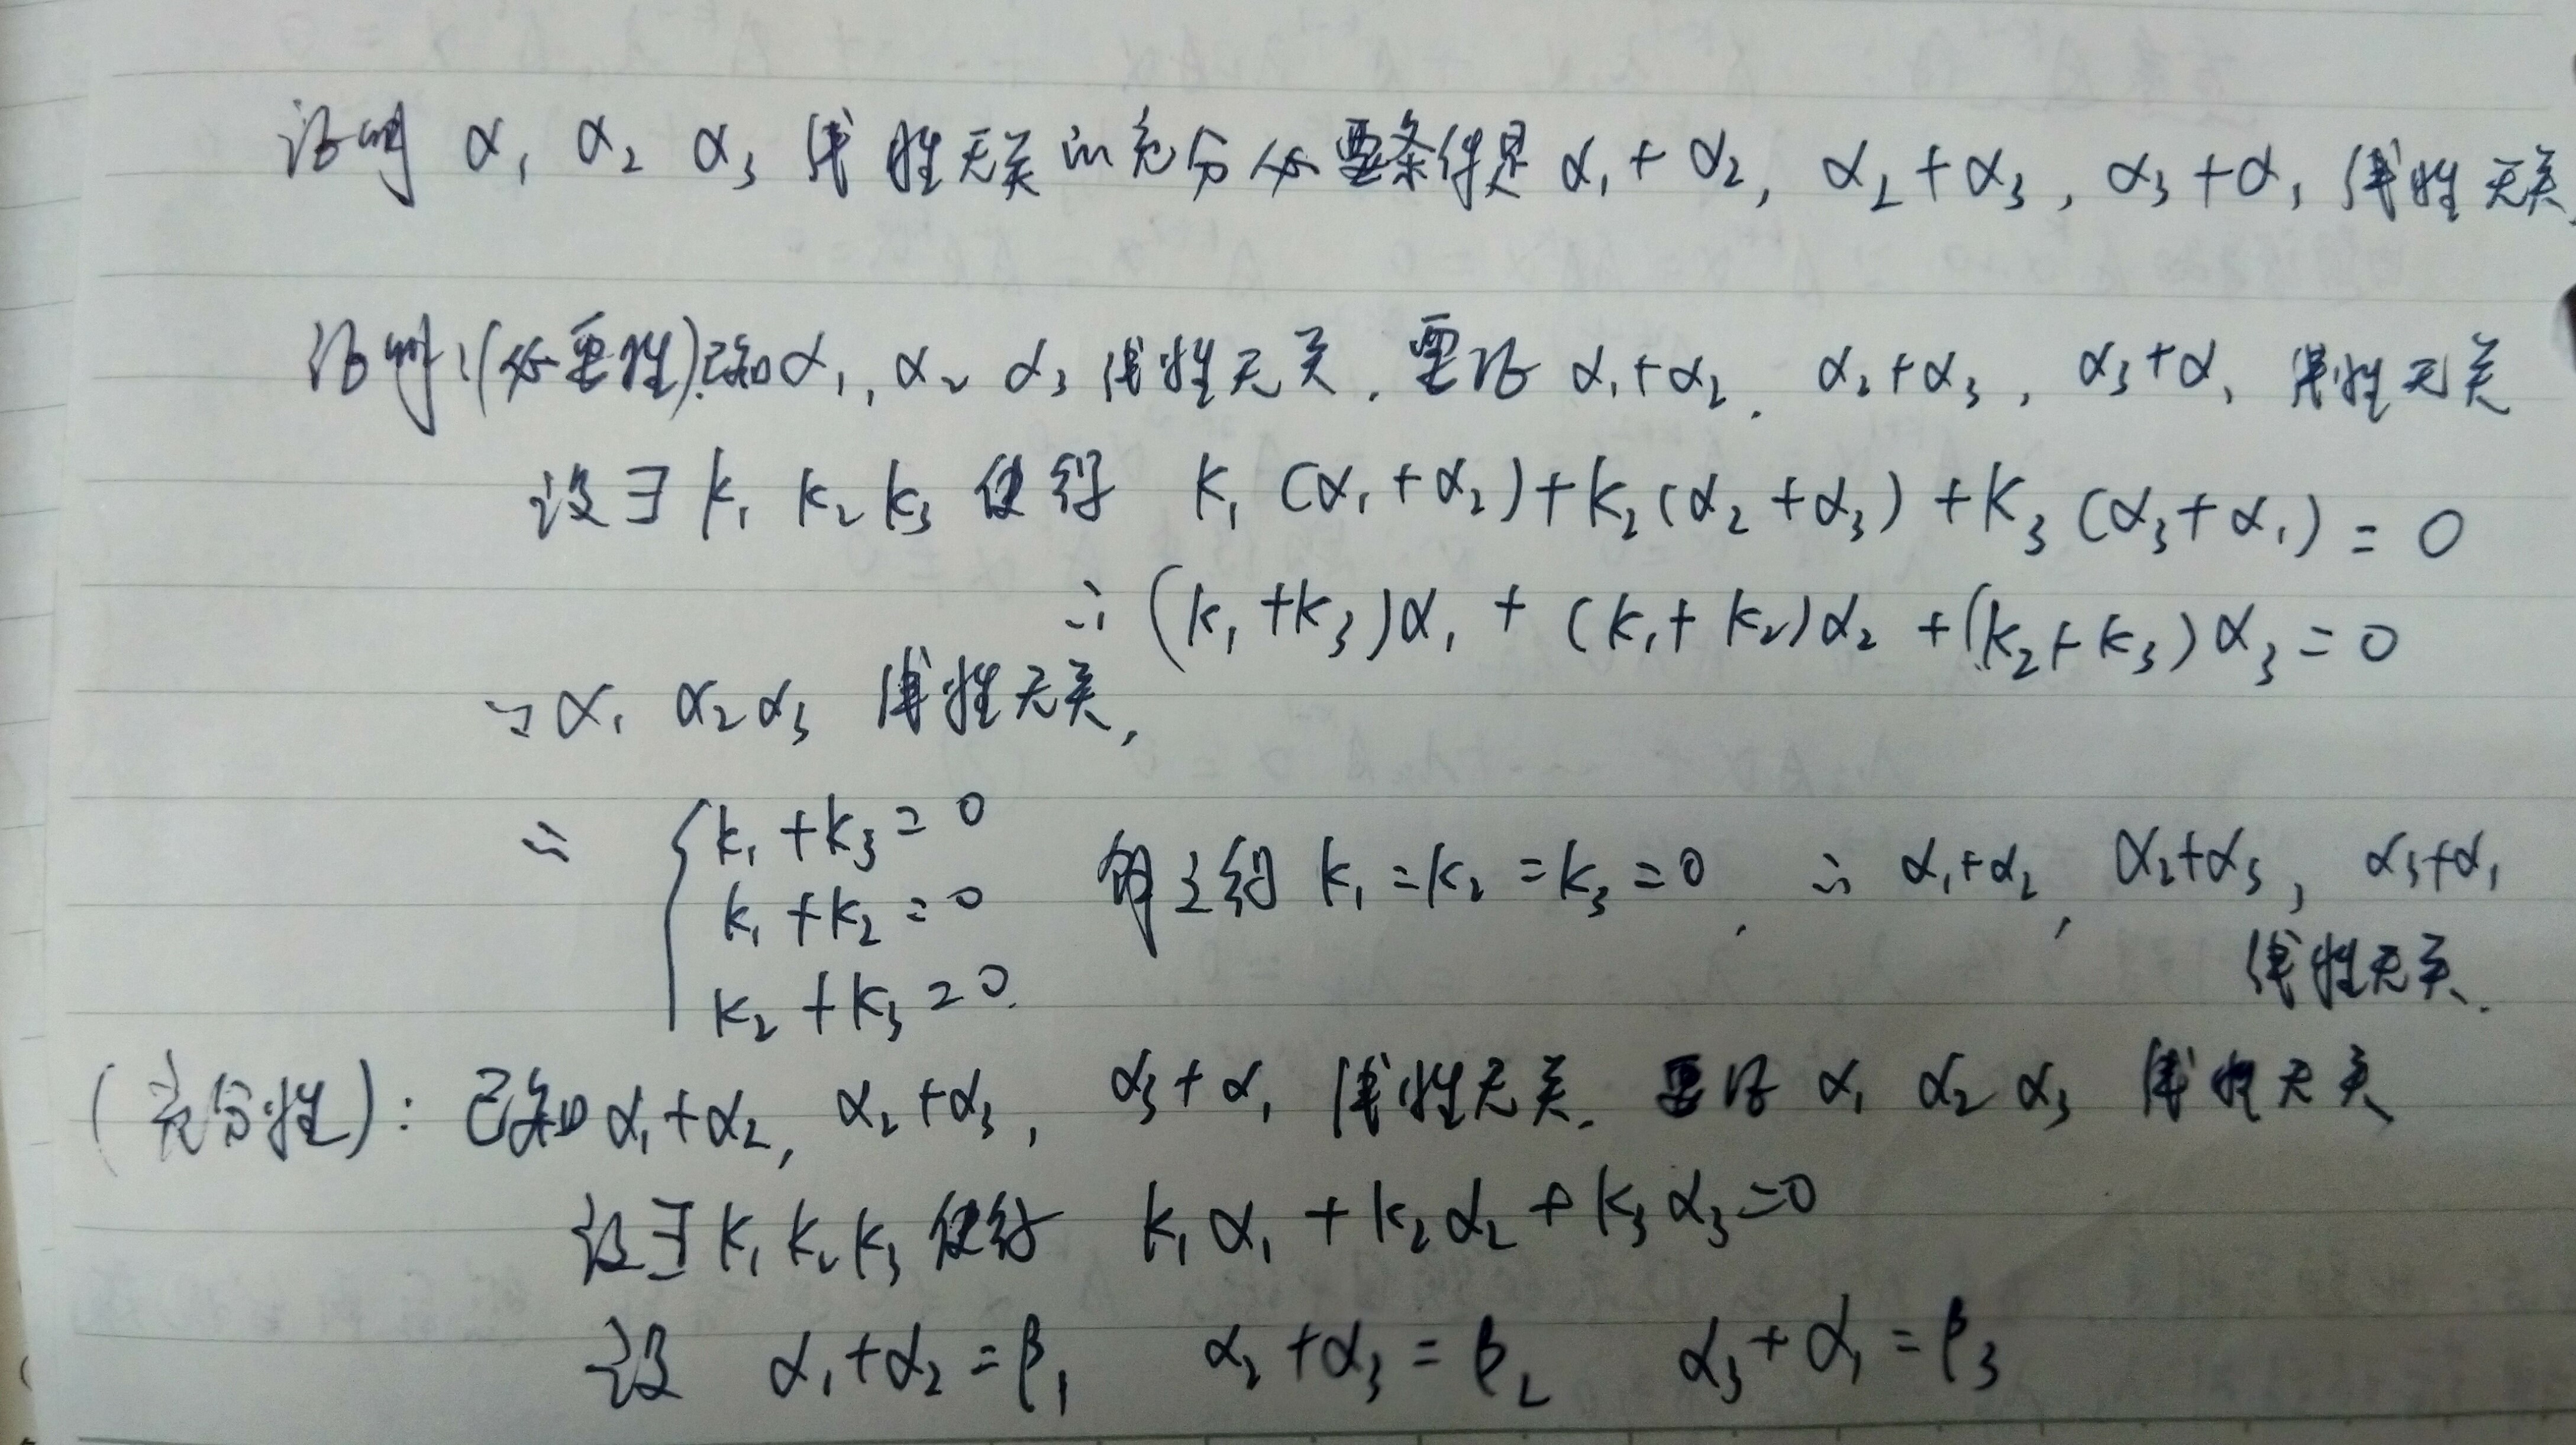 证明 α₁ α₂ α₃ 线性无关的充分必要条件是 α₁+α₂, α₂+α₃, α₃+α₁ 线性无关.
证明:(必要性).已知α₁, α₂ α₃ 线性无关. 要证 α₁+α₂. α₂+α₃, α₃+α₁ 线性无关
设∃ k₁ k₂ k₃ 使得 k₁(α₁+α₂)+k₂(α₂+α₃)+k₃(α₃+α₁)=0
∴ (k₁+k₃)α₁+(k₁+k₂)α₂+(k₂+k₃)α₃=0
∵α₁ α₂ α₃ 线性无关,
∴ { k₁+k₃=0
k₁+k₂=0 解之得 k₁=k₂=k₃=0, ∴ α₁+α₂, α₂+α₃, α₃+α₁
k₂+k₃=0. 线性无关.
(充分性): 已知α₁+α₂, α₂+α₃, α₃+α₁ 线性无关. 要证 α₁ α₂ α₃ 线性无关
设∃ k₁ k₂ k₃ 使得 k₁α₁+k₂α₂+k₃α₃=0
设 α₁+α₂=β₁ α₂+α₃=β₂ α₃+α₁=β₃